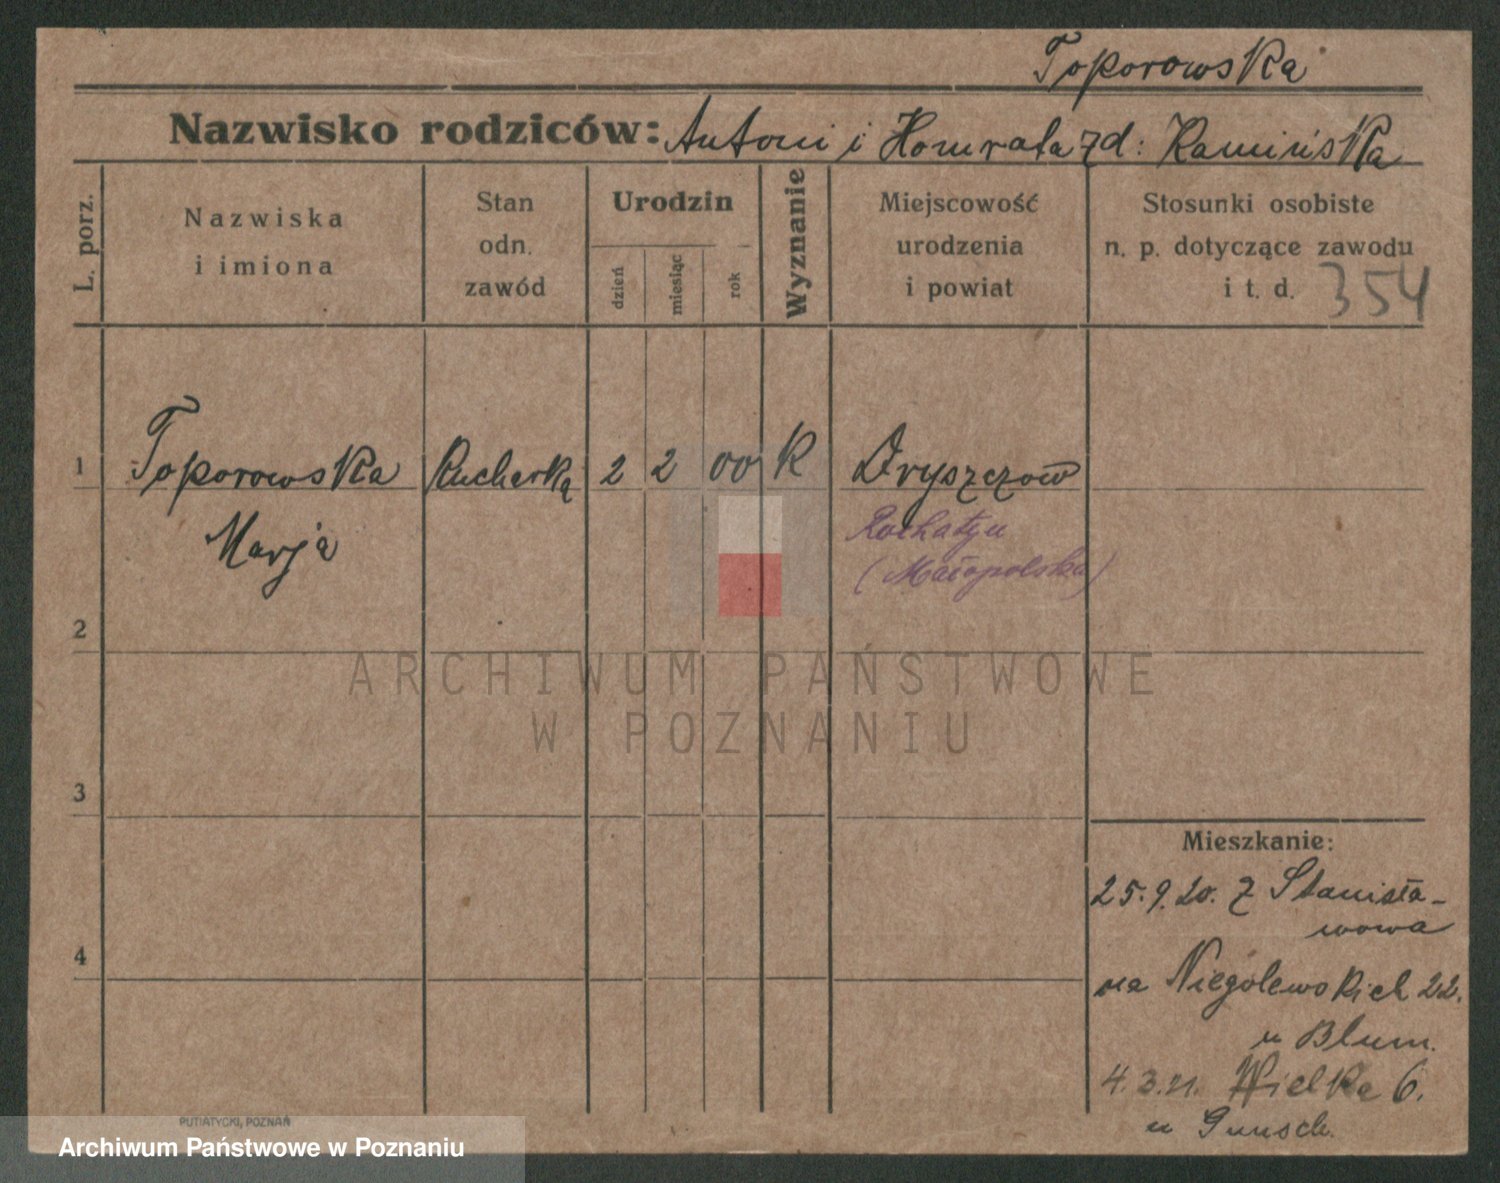 Toporowska
Nazwisko rodziców: Antoni i Honorata zd: Kamińska
L. porz.
Nazwiska
i imiona
Stan
odn.
zawód
Urodzin
dzień
miesiąc
rok
Wyznanie
Miejscowość
urodzenia
i powiat
Stosunki osobiste
n. p. dotyczące zawodu
i t. d. 354
1 Toporowska Kucharka 2 2 00 K Dryszczow
Marja
Rohatyn
(Małopolska)
2
ARCHIWUM PAŃSTWOWE
W POZNANIU
3
Mieszkanie:
25.9.20. z Stanisła-
wowa
4
na Niegolewskich 22.
u Blum.
4.3.21. Wielka 6.
u
PUTIATYCKI, POZNAŃ
Archiwum Państwowe w Poznaniu